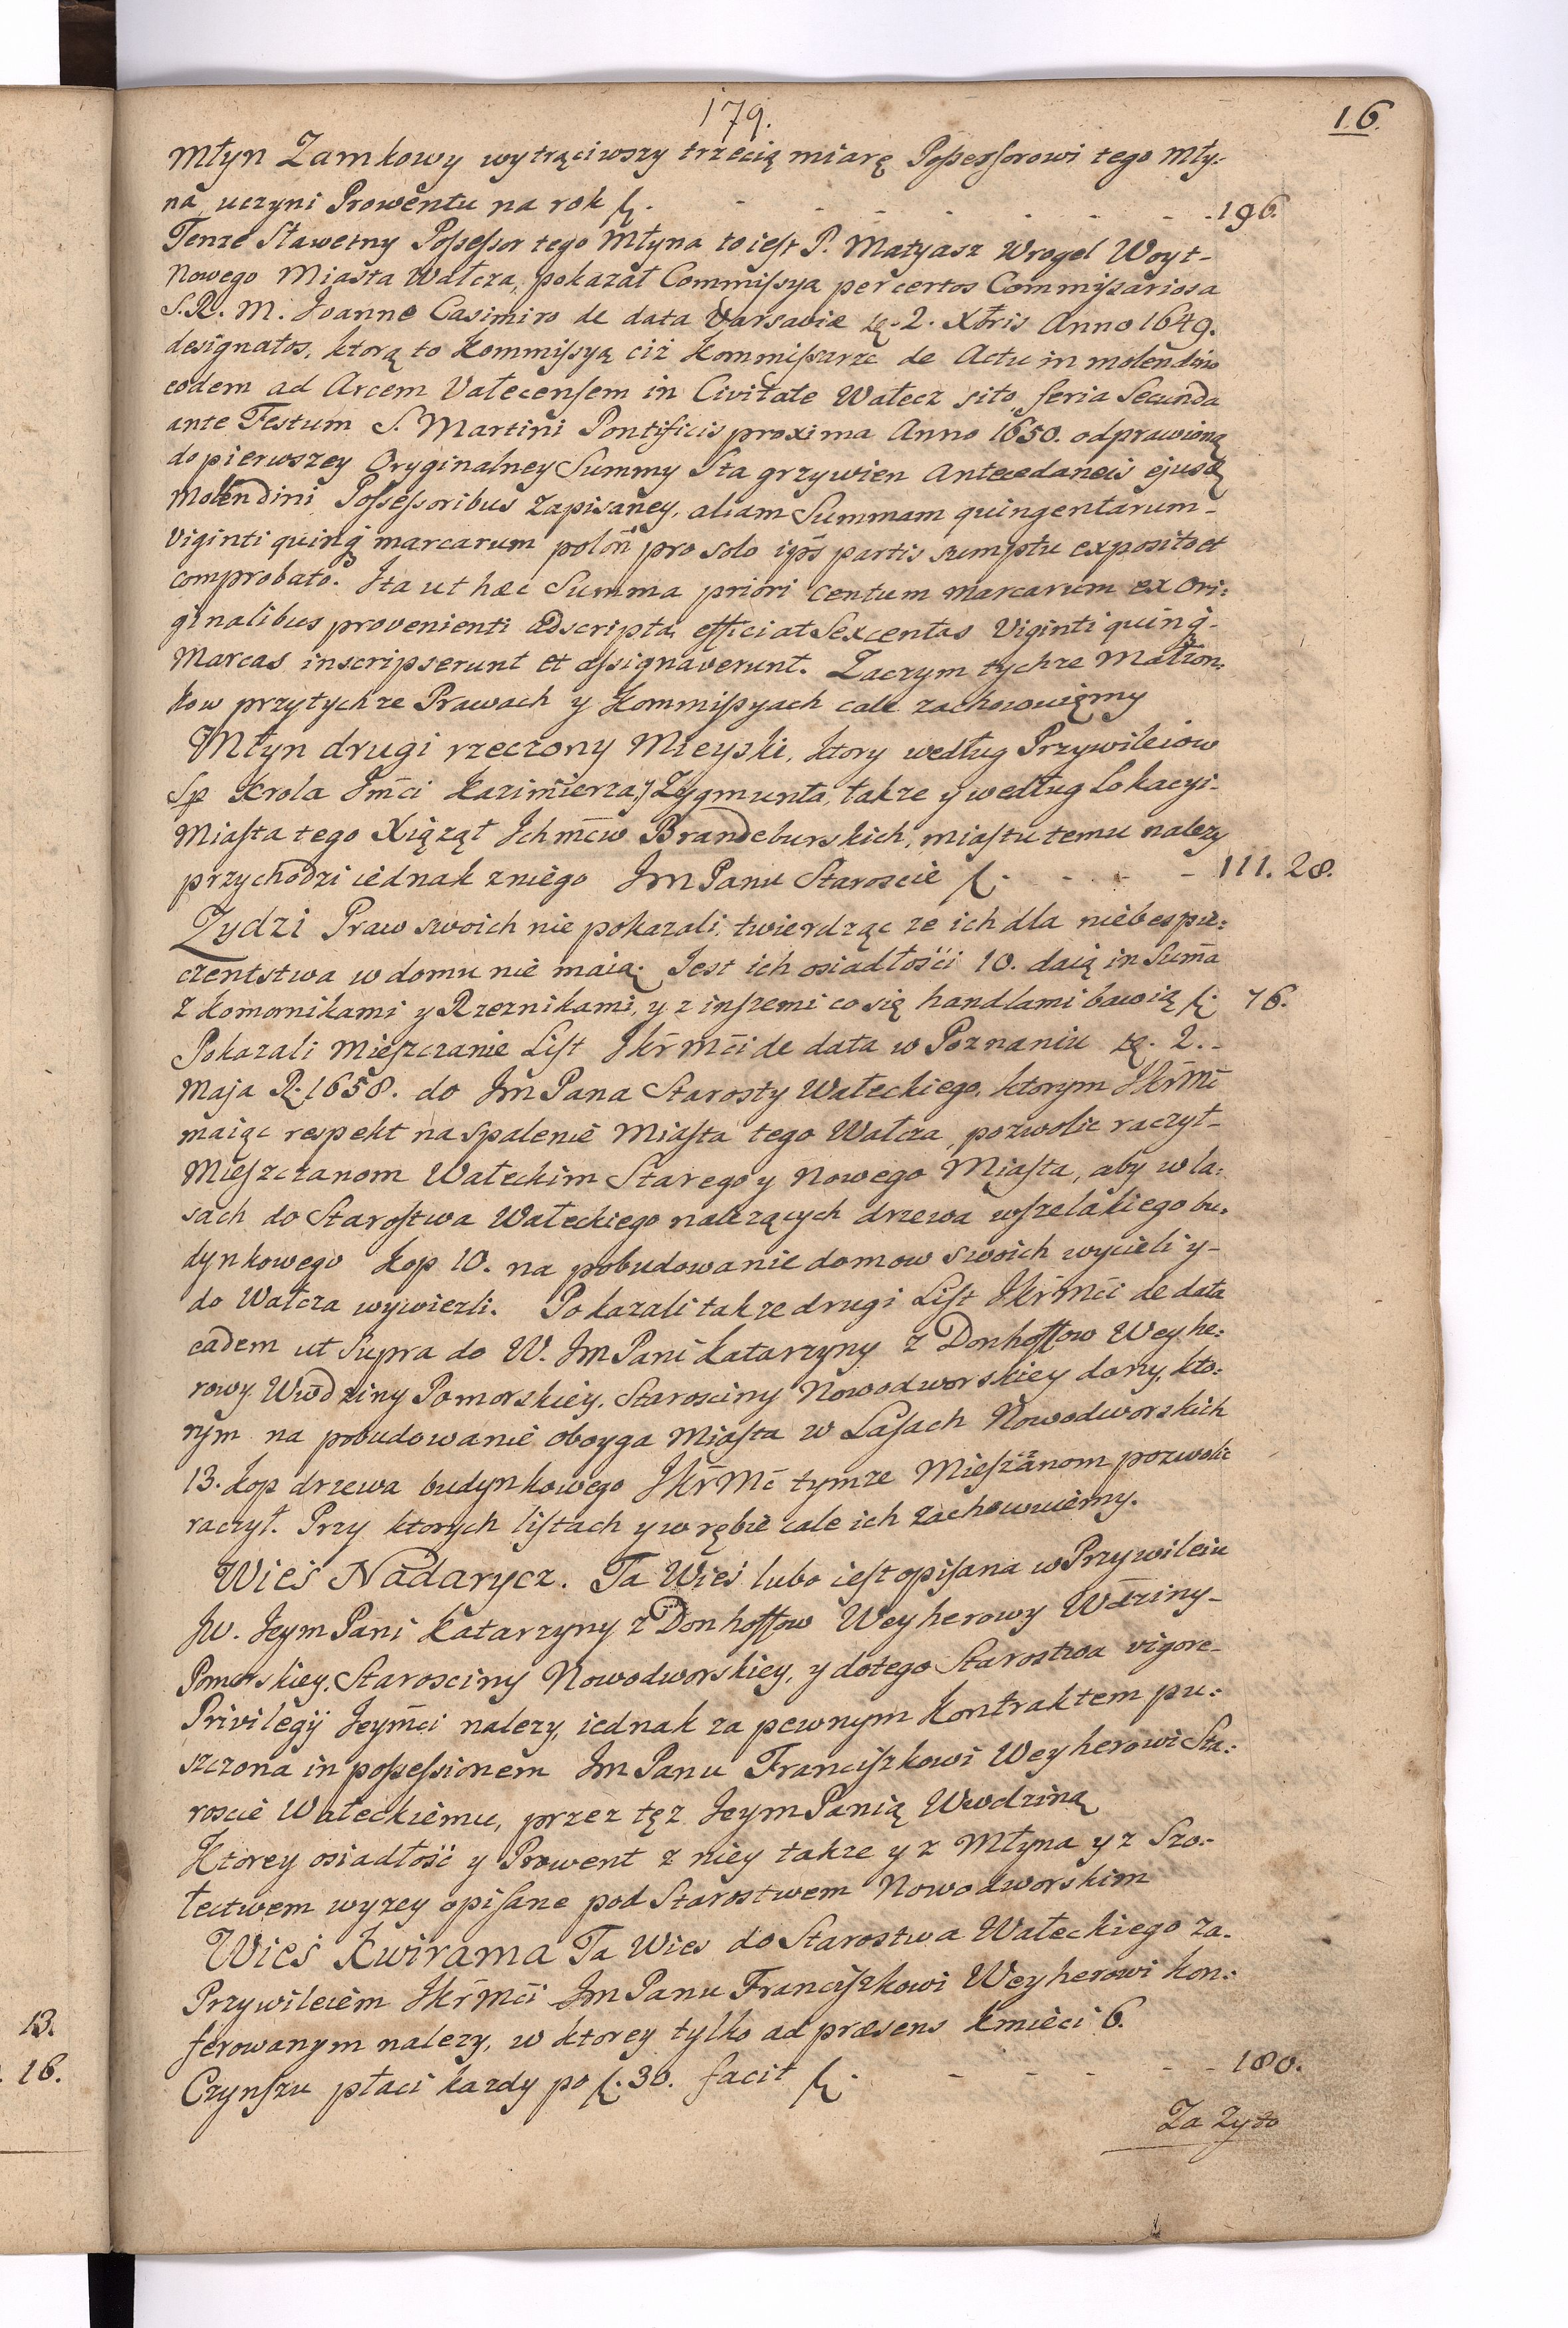 179.
16.
Młyn Zamkowy wytrąciwszy trzecią miarę Possessorowi tego Mły:
na uczyni Prowentu na rok f. - - - - - - - 196.
Tenze Sławetny Possessor tego Młyna to iest P. Matyasz Wrogel Woyt-
Nowego Miasta Wałcza, pokazał Commissya per certos Commissarios a
S. R. M. Joanne Casimiro de data Varsaviæ 2. Xbris Anno 1649.
designatos, ktorą to Kommissyą ciż Kommissarze de Actu in molendino
eodem ad Arcem Valecensem in Civitate Wałecz sito, feria Secunda
ante Festum S. Martini Pontificis proxima Anno 1650. odprawioną
do pierwszey Oryginalney Summy Sta grzywien Antecedaneis ejusd
Molendini Possessoribus zapisaney, aliam Summam quingentarum-
Viginti quinq marcarum poloń pro solo ips partis sumptu exposito et
comprobato. Ita ut hæc Summa priori Centum Marcarum ex Ori:
ginalibus provenienti adscripta, efficiat Sexcentas Viginti quinq-
Marcas inscripserunt et assignaverunt. Zaczym tychze Małżon:
kow przy tychze Prawach y Kommissyach cale zachowuięmy
Młyn drugi rzeczony Mieyski, ktory według Przywileiow
Sp Krola Jm̃ci Kazimierza, y Zygmunta, takze y według Lokacyi-
Miasta tego Xiąząt Ichm̃ciw Brandeburskich, miastu temu nalezy
przychodzi iednak z niego Jm Panu Staroscie f. - - - - 111. 28.
Zydzi Praw swoich nie pokazali, twierdząc ze ich dla niebespie:
czenstwa w domu nie maią. Jest ich osiadłości 10. daią in Sum̃a
z komornikami y Rzeznikami, y z inszemi co się handlami bawią f. 76.
Pokazali Mieszczanie List JKr̃Mc̃i de data w Poznaniu 2.-
Maja R. 1658. do Jm Pana Starosty Wałeckiego, ktorym JKr̃Mc̃
maiąc respekt na spalenie Miasta tego Wałcza, pozwolic raczył-
Mieszczanom Wałeckim Starego y Nowego Miasta, aby w la:
sach do Starostwa Wałeckiego nalezących drzewa wszelakiego bu:
dynkowego kop 10. na pobudowanie domow swoich wycieli y-
do Wałcza wywiezli. Pokazali takze drugi List JKr̃Mc̃i de data
eadem ut Supra do W. Jm Pani Katarzyny z Donhoffow Weyhe:
rowy Wwdziny Pomorskiey, Starosciny Nowodworskiey dany, kto:
rym na pobudowanie oboyga Miasta w Lasach Nowodworskich
13. kop drzewa budynkowego JKr̃Mc̃ tymze Mieszczanom pozwolic
raczył. Przy ktorych listach y w rębie cale ich zachowuiemy.
Wieś Nadarycz. Ta Wieś lubo iest opisana w Przywileiu
Jw. Jeym Pani Katarzyny z Donhoffow Weyherowy Wdziny-
Pomorskiey, Starosciny Nowodworskiey, y do tego Starostwa vigore-
Privilegÿ Jeym̃ci nalezy, iednak za pewnym Kontraktem pu:
szczona in possessionem Jm Panu Franciszkowi Weyherowi Sta:
roscie Wałeckiemu, przez tęz Jeym Panią Wwdziną
Ktorey osiadłość y Prowent z niey takze y z Młyna y z Szo:
łectwem wyzey opisane pod Starostwem Nowodworskim
Wieś Kwirama Ta Wies do Starostwa Wałeckiego za-
Przywileiem JKr̃Mc̃i Jm Panu Franciszkowi Weyherowi kon:
ferowanym nalezy, w ktorey tylko ad præsens Kmieci 6.
Czynszu płaci kazdy po f. 30. facit f. - - - - - 180.
Za Zyto
13.
16.